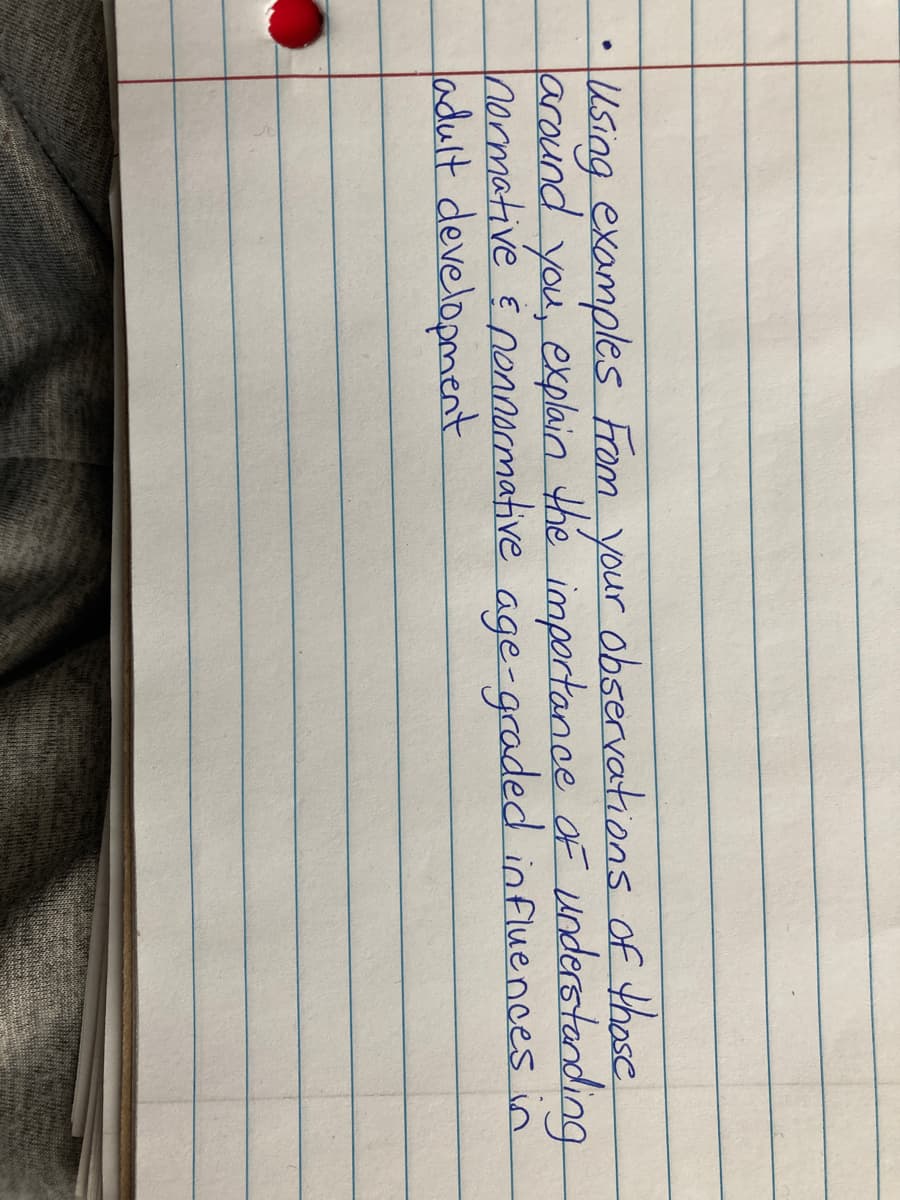 • Using examples from your observations of those
around you, explain the importance of understanding
normative & nonnormative age-graded influences in
adult development